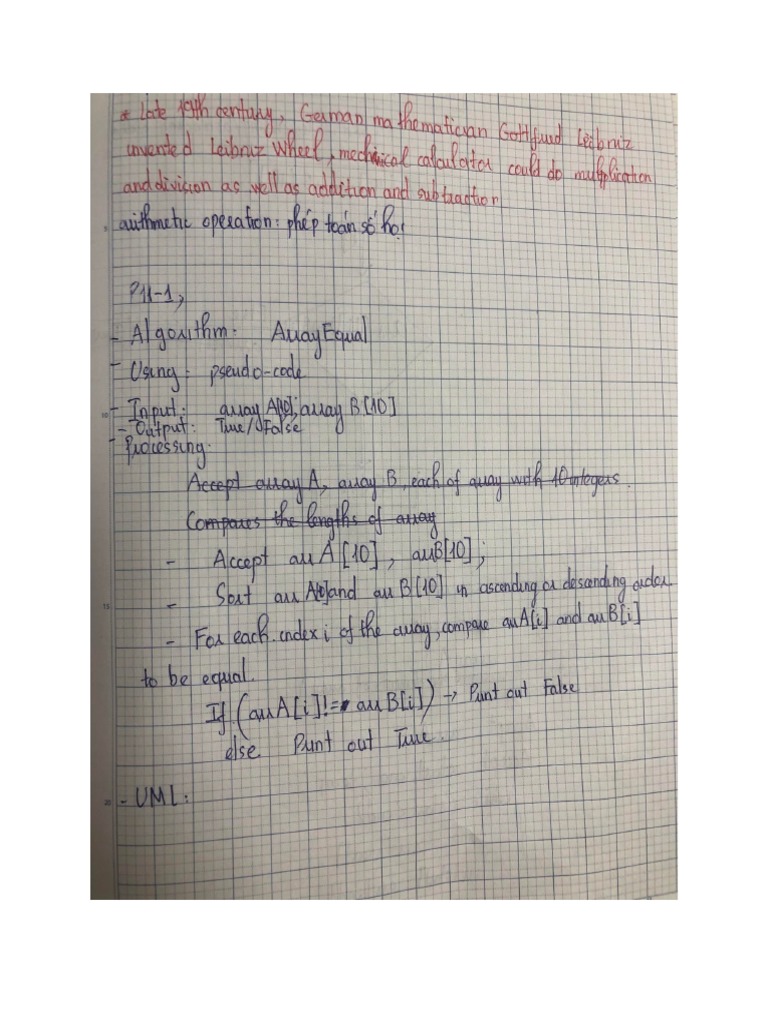 * Late 17th century, German mathematician Gottfried Leibniz
invented Leibniz Wheel, mechnical calculator could do multiplication
and division as well as addition and subtraction
arithmetic operation: phép toán số học
P11-1,
- Algorithm: ArrayEqual
- Using: pseudo-code
- Input: array A[10]; array B[10]
- Output: True/False
- Processing:
Accept array A, array B, each of array with 10 integers.
Compares the lengths of array
- Accept arr A[10], arrB[10];
- Sort arr A[10] and arr B[10] in ascending or descending order.
- For each index i of the array, compare arrA[i] and arrB[i]
to be equal.
If (arrA[i] != arrB[i]) → Print out False
else Print out True.
- UML: